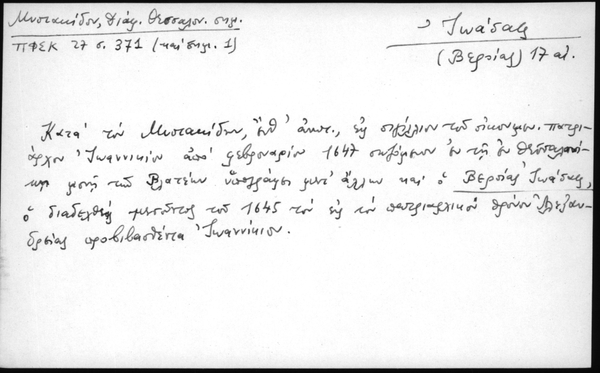 Μυστακίδου, Διάφ. Θεσσαλον. σημ.
ΠΦΣΚ 27 σ. 371 (καί σημ. 1)
Ἰωάσαφ
(Βεροίας) 17 αἰ.
Κατά τόν Μυστακίδην, ἔνθ' ἀνωτ., εἰς σιγίλλιον τοῦ οἰκουμεν. πατρι-
άρχου Ἰωαννικίου ἀπό φεβρουαρίου 1647 σωζόμενον ἐν τῇ ἐν Θεσσαλονί-
κῃ μονῇ τῶν Βλατέων ὑπογράφει μετ' ἄλλων καί ὁ Βεροίας Ἰωάσαφ,
ὁ διαδεχθείς μεσοῦντος τοῦ 1645 τόν εἰς τόν πατριαρχικόν θρόνον Ἀλεξαν-
δρείας προβιβασθέντα Ἰωαννίκιον.